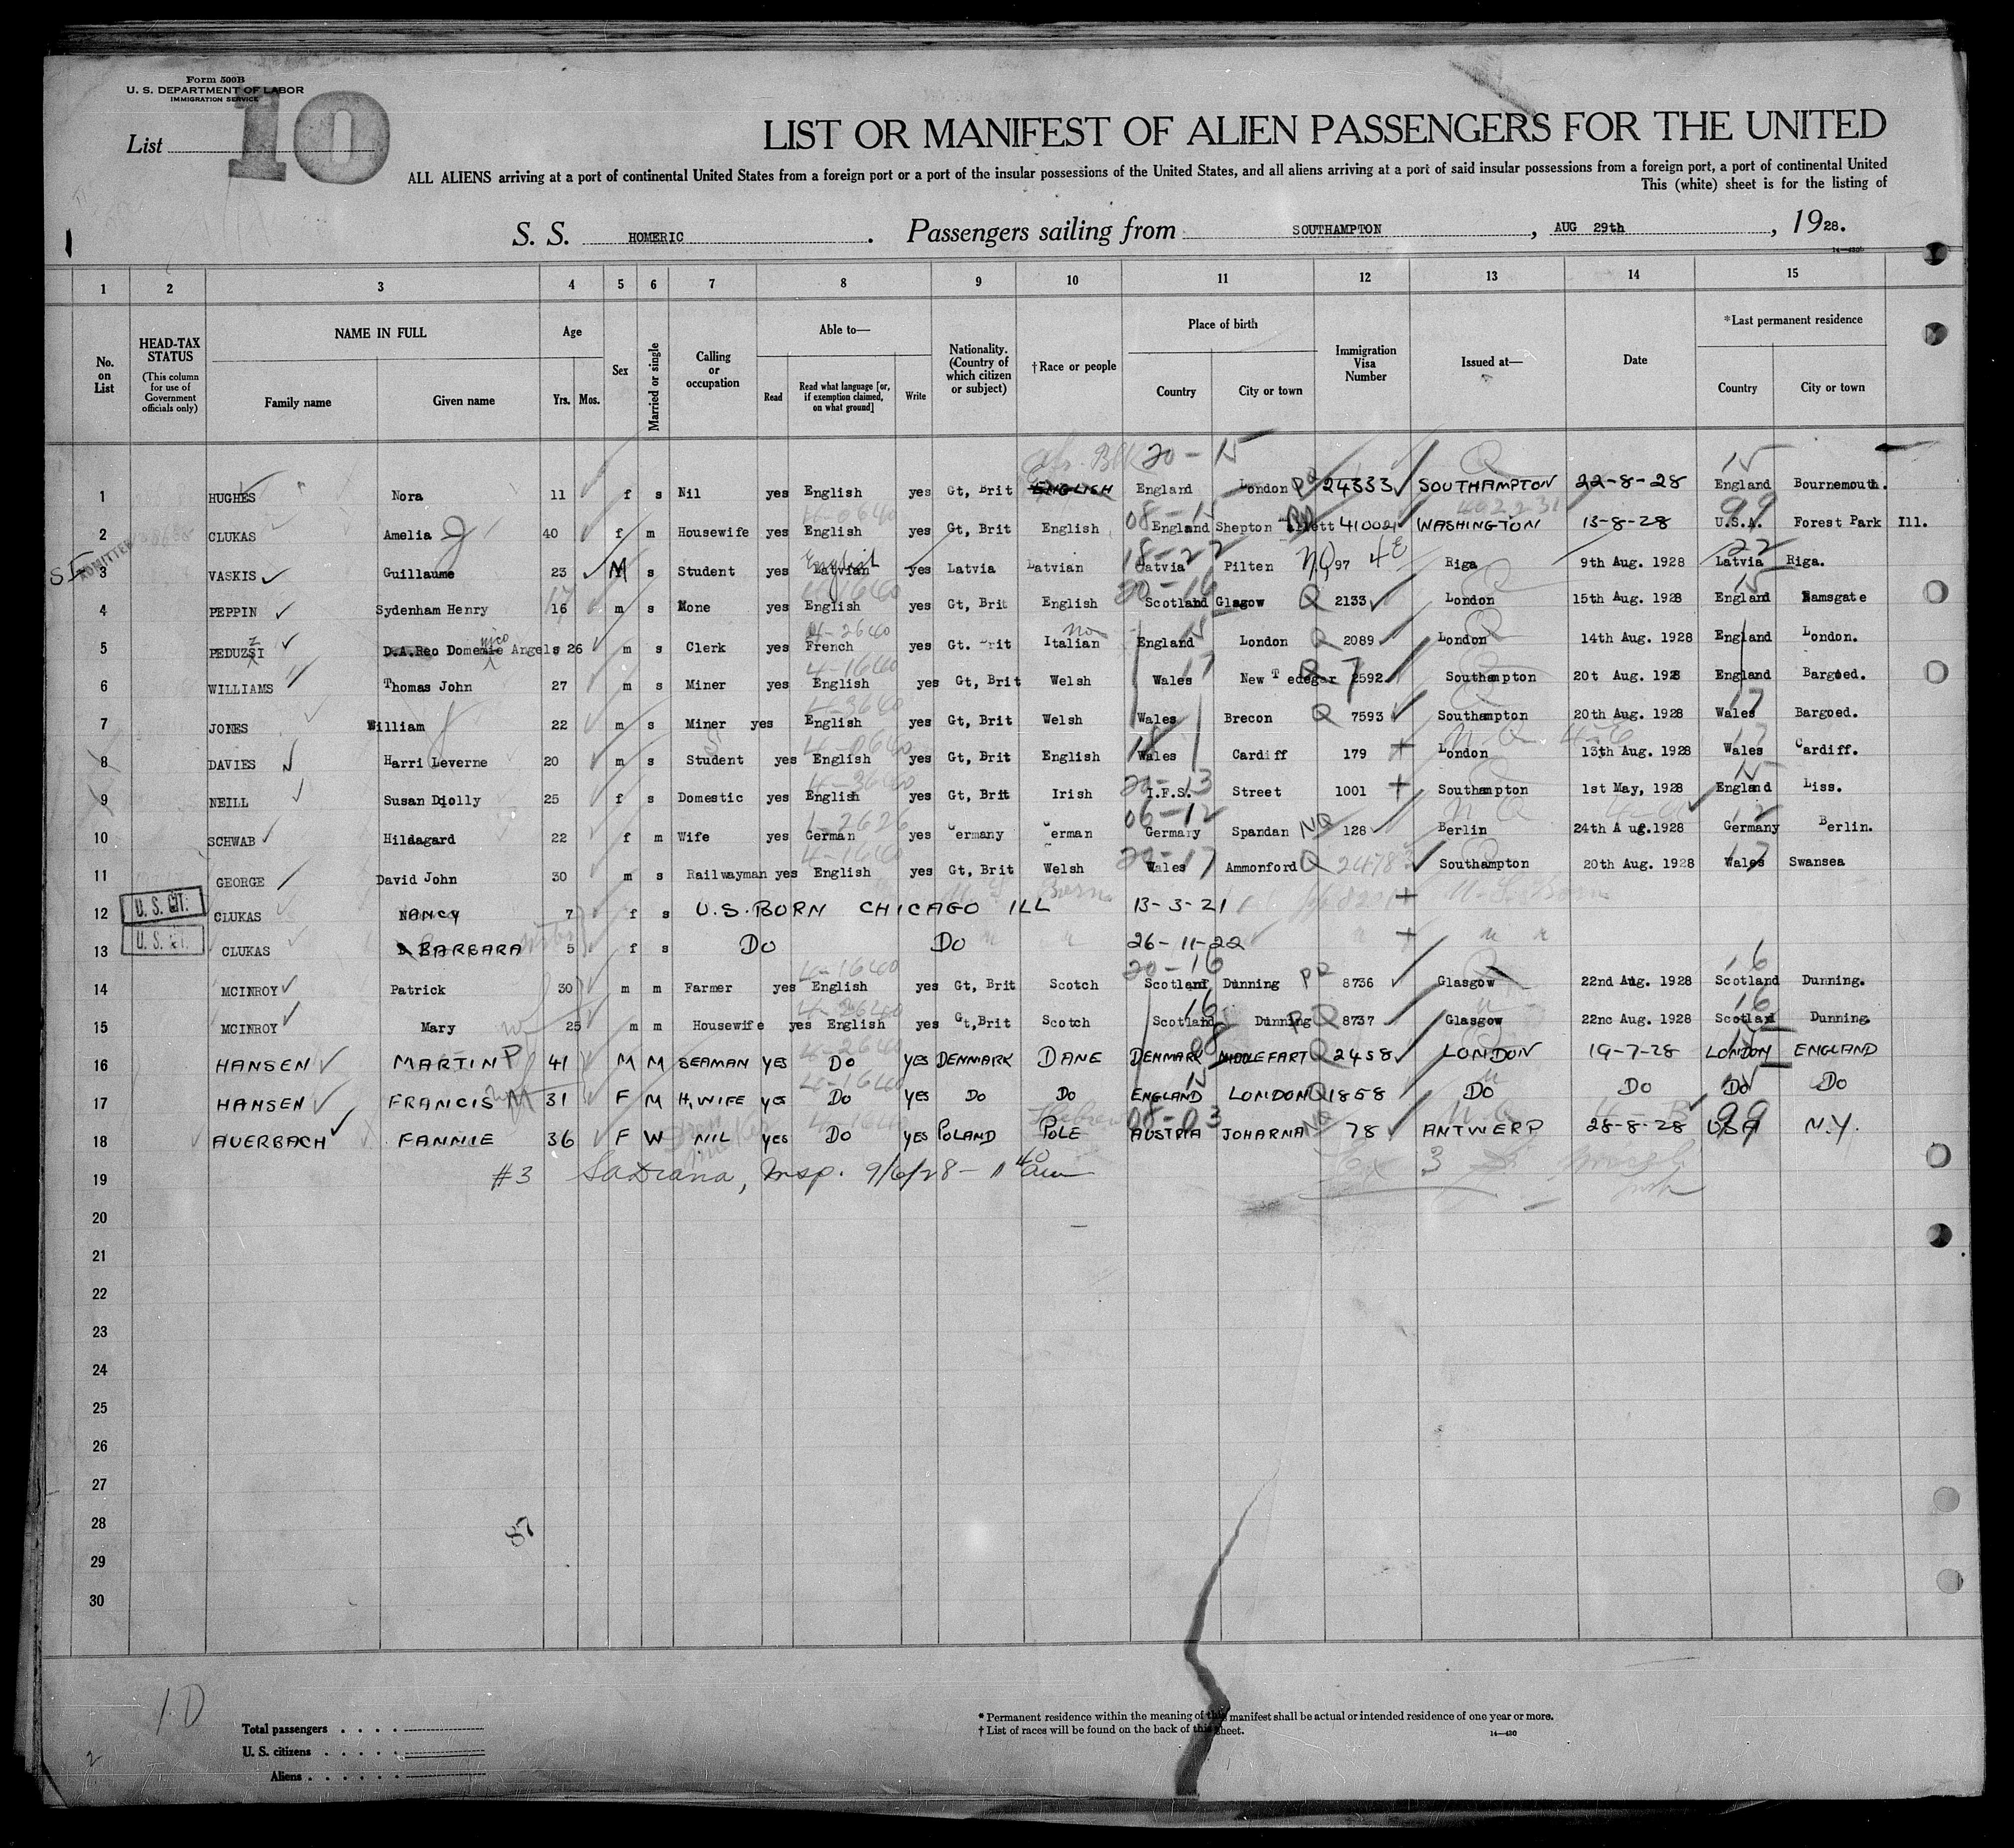 Form 500B
U. S. DEPARTMENT OF LABOR
IMMIGRATION SERVICE
List 10
LIST OR MANIFEST OF ALIEN PASSENGERS FOR THE UNITED
ALL ALIENS arriving at a port of continental United States from a foreign port or a port of the insular possessions of the United States, and all aliens arriving at a port of said insular possessions from a foreign port, a port of continental United
This (white) sheet is for the listing of
S. S. HOMERIC. Passengers sailing from SOUTHAMPTON, AUG 29th, 1928.
1 2 3 4 5 6 7 8 9 10 11 12 13 14 15
No. on List
HEAD-TAX STATUS (This column for use of Government officials only)
NAME IN FULL Family name Given name
Age Yrs. Mos.
Sex
Married or single
Calling or occupation
Able to— Read Read what language [or, if exemption claimed, on what ground] Write
Nationality. (Country of which citizen or subject)
†Race or people
Place of birth Country City or town
Immigration Visa Number
Issued at—
Date
*Last permanent residence Country City or town
20-15 15
1 HUGHES Nora 11 f s Nil yes English yes Gt, Brit ENGLISH England London 24333 SOUTHAMPTON 22-8-28 England Bournemouth.
2 CLUKAS Amelia J 40 f m Housewife yes English yes Gt, Brit English England Shepton 410021 WASHINGTON 13-8-28 U.S.A. Forest Park Ill.
SI ADMITTED
3 VASKIS Guillaume 23 M s Student yes Latvian English yes Latvia Latvian Latvia Pilten NQ 97 Riga 9th Aug. 1928 Latvia Riga.
4 PEPPIN Sydenham Henry 16 17 m s None yes English yes Gt, Brit English Scotland Glasgow Q 2133 London 15th Aug. 1928 England Ramsgate
5 PEDUZSI z D.A.Reo Domenic nico Angelo 26 m s Clerk yes French yes Gt. Brit Italian no England London Q 2089 London 14th Aug. 1928 England London.
6 WILLIAMS Thomas John 27 m s Miner yes English yes Gt, Brit Welsh Wales New Tedegar 7592 Southampton 20t Aug. 1928 England Bargoed.
7 JONES William 22 m s Miner yes English yes Gt, Brit Welsh Wales Brecon Q 7593 Southampton 20th Aug. 1928 Wales Bargoed.
8 DAVIES Harri Leverne 20 m s Student yes English yes Gt, Brit English Wales Cardiff 179 London 13th Aug. 1928 Wales Cardiff.
9 NEILL Susan Djolly 25 f s Domestic yes English yes Gt, Brit Irish I.F.S. Street 1001 Southampton 1st May, 1928 England Liss.
10 SCHWAB Hildagard 22 f m Wife yes German yes Germany German Germany Spandan NQ 128 Berlin 24th Aug.1928 Germany Berlin.
11 GEORGE David John 30 m s Railwayman yes English yes Gt, Brit Welsh Wales Ammonford Q 24783 Southampton 20th Aug. 1928 Wales Swansea
U. S. CIT.
12 CLUKAS NANCY 7 f s U.S. BORN CHICAGO ILL 13-3-21
U. S. CIT.
13 CLUKAS BARBARA 5 f s DO DO 26-11-22
14 MCINROY Patrick 30 m m Farmer yes English yes Gt, Brit Scotch Scotland Dunning 8736 Glasgow 22nd Aug. 1928 Scotland Dunning.
15 MCINROY Mary 25 m m Housewife yes English yes Gt,Brit Scotch Scotland Dunning 8737 Glasgow 22nc Aug. 1928 Scotland Dunning.
16 HANSEN MARTIN P 41 M M SEAMAN YES DO YES DENMARK DANE DENMARK MIDDLEFART Q 2458 LONDON 19-7-28 LONDON ENGLAND
17 HANSEN FRANCIS M 31 F M H,WIFE YES DO YES DO DO ENGLAND LONDON Q 1858 DO DO DO DO
18 AUERBACH FANNIE 36 F W NIL YES DO YES POLAND POLE AUSTRIA JOHARNA NQ 78 ANTWERP 28-8-28 USA N.Y.
19 #3 9/6/28 - 11 40 am
20
21
22
23
24
25
26
27
28 87
29
30
10
Total passengers
U. S. citizens
Aliens
* Permanent residence within the meaning of this manifest shall be actual or intended residence of one year or more.
† List of races will be found on the back of this sheet.
14—430
2